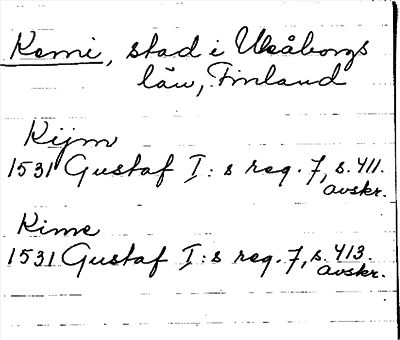 Kemi, stad i Uleåborgs
län, Finland
Kijm
1531 Gustaf I:s reg. 7, s. 411.
avskr.
Kime
1531 Gustaf I:s reg. 7, s. 413.
avskr.